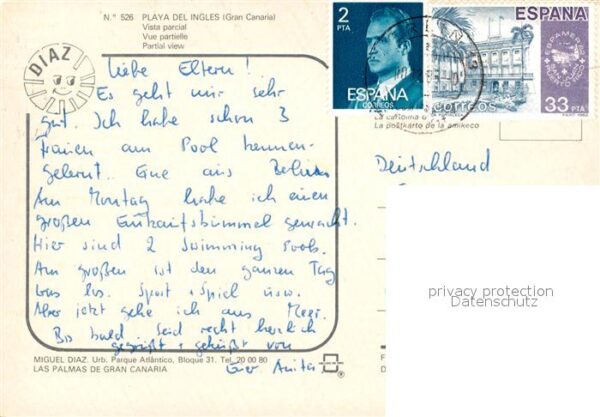 N.º 526 PLAYA DEL INGLES (Gran Canaria)
Vista parcial
Vue partielle
Partial view
DIAZ
2
PTA
ESPAÑA
CORREOS
ESPAÑA
ESPAMER
CORREOS
33
PTA
La postkarto de la amikeco
Liebe Eltern!
Es geht mir sehr
gut. Ich habe schon 3
Frauen am Pool kennen-
gelernt. Eine aus
Am Montag habe ich einen
großen Einkaufsbummel gemacht.
Hier sind 2 Swimming Pools.
Am großen ist den ganzen Tag
was los. Sport + Spiel usw.
Aber jetzt gehe ich ans Meer.
Bis bald. Seid recht herzlich
gegrüßt + geküßt von
Eurer Anita
Deutschland
privacy protection
Datenschutz
MIGUEL DIAZ. Urb. Parque Atlántico, Bloque 31. Tel. 20 00 80
LAS PALMAS DE GRAN CANARIA